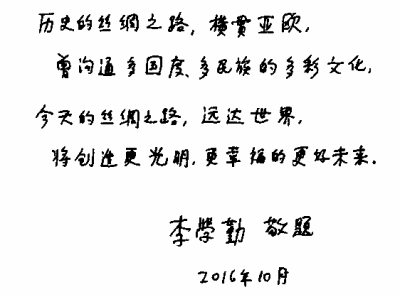 历史的丝绸之路，横贯亚欧，
曾沟通多国度、多民族的多彩文化，
今天的丝绸之路，远达世界，
将创造更光明、更幸福的更好未来。
李學勤 敬题
2016年10月